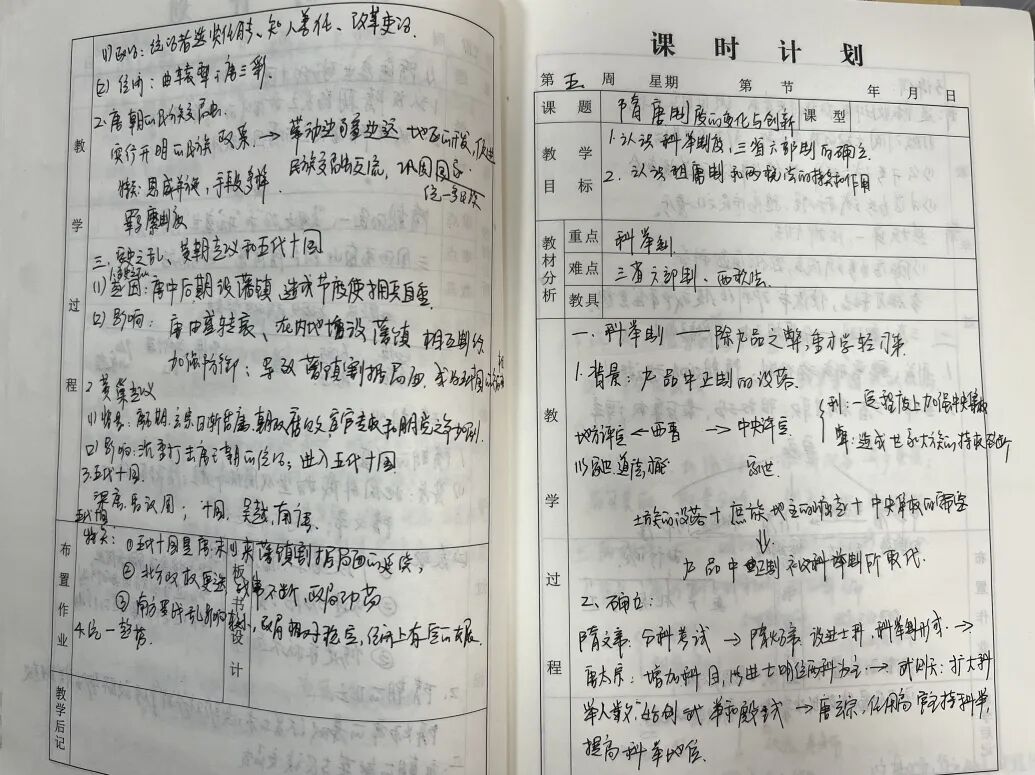 教学过程
(1) 政治：统治者选贤任能、知人善任、改革吏治.
(2) 经济：曲辕犁；唐三彩.
2. 唐朝的民族交融
实行开明的民族政策 → 带动边疆 地区的开发, 促进
民族交融与交流, 巩固国家
统一多民族
特点：恩威并施, 手段多样.
羁縻制度
三. 安史之乱、黄巢起义和五代十国
1.安史之乱
(1) 原因：唐中后期设藩镇 造成节度使拥兵自重
(2) 影响：唐由盛转衰、在内地增设藩镇 相互制约
加强防御；导致藩镇割据局面,
2 黄巢起义
(1) 背景：
(2) 影响：打击唐王朝的统治；进入五代十国
3.五代十国
五代 梁唐晋汉周； 十国, 吴越, 南唐.
特点： ①五代十国是唐末以来藩镇割据局面的延续,
② 北方政权更迭 战事不断, 政局动荡
③ 南方受战乱影响较小, 政局相对稳定, 经济上有一定的发展
4.统一趋势
布置作业
板书设计
教学后记
课时计划
第 五 周 星期 第 节 年 月 日
课题 隋唐制度的变化与创新 课型
教学目标 1. 认识科举制度, 三省六部制的确立.
2. 认识租庸制和两税法的特点和作用
教材分析
重点 科举制
难点 三省六部制、两税法.
教具
教学过程
一. 科举制 —— 除九品之弊, 重才学轻门第.
1. 背景：九品中正制的没落.
地方评定 ← 西晋 → 中央评定
利：一定程度上加强中央集权
弊：造成世家大族的持续垄断
家世道德才能 家世
士族的没落 + 庶族地主的崛起 + 中央集权的需要
⇓
九品中正制被科举制所取代.
2. 确立：
隋文帝. 分科考试 → 隋炀帝. 设进士科, 科举制形成. →
唐太宗：增加科目, 以进士明经两科为主. → 武则天：扩大科
举人数, 始创武举和殿试 → 唐玄宗, 任用高官主持科举,
提高科举地位.